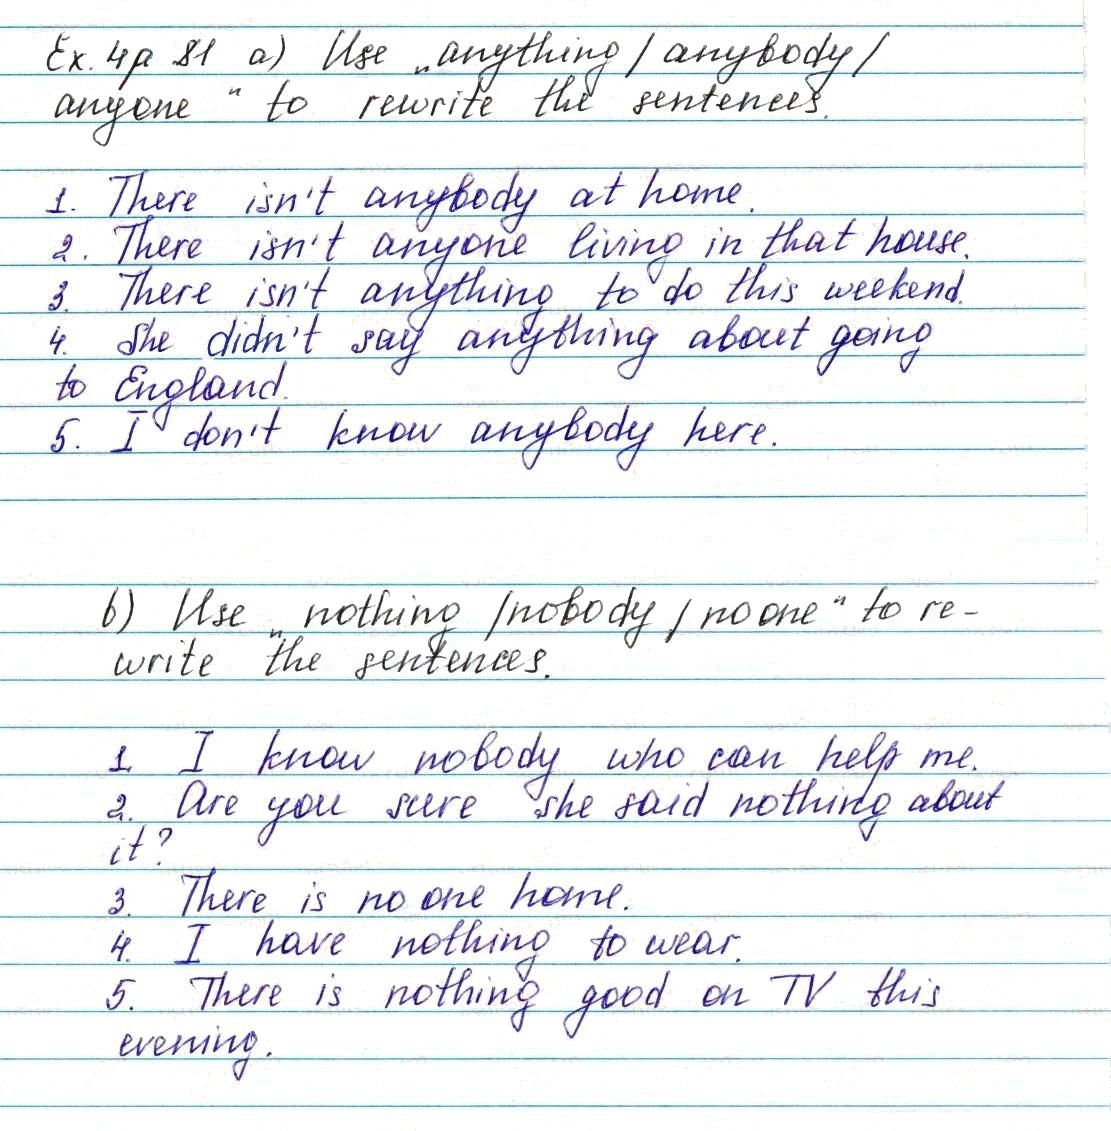 Ex. 4p 81 a) Use „anything / anybody /
anyone" to rewrite the sentences.
1. There isn't anybody at home.
2. There isn't anyone living in that house.
3. There isn't anything to do this weekend.
4. She didn't say anything about going
to England.
5. I don't know anybody here.
b) Use „nothing / nobody / no one" to re-
write the sentences.
1. I know nobody who can help me.
2. Are you sure she said nothing about
it?
3. There is no one home.
4. I have nothing to wear.
5. There is nothing good on TV this
evening.